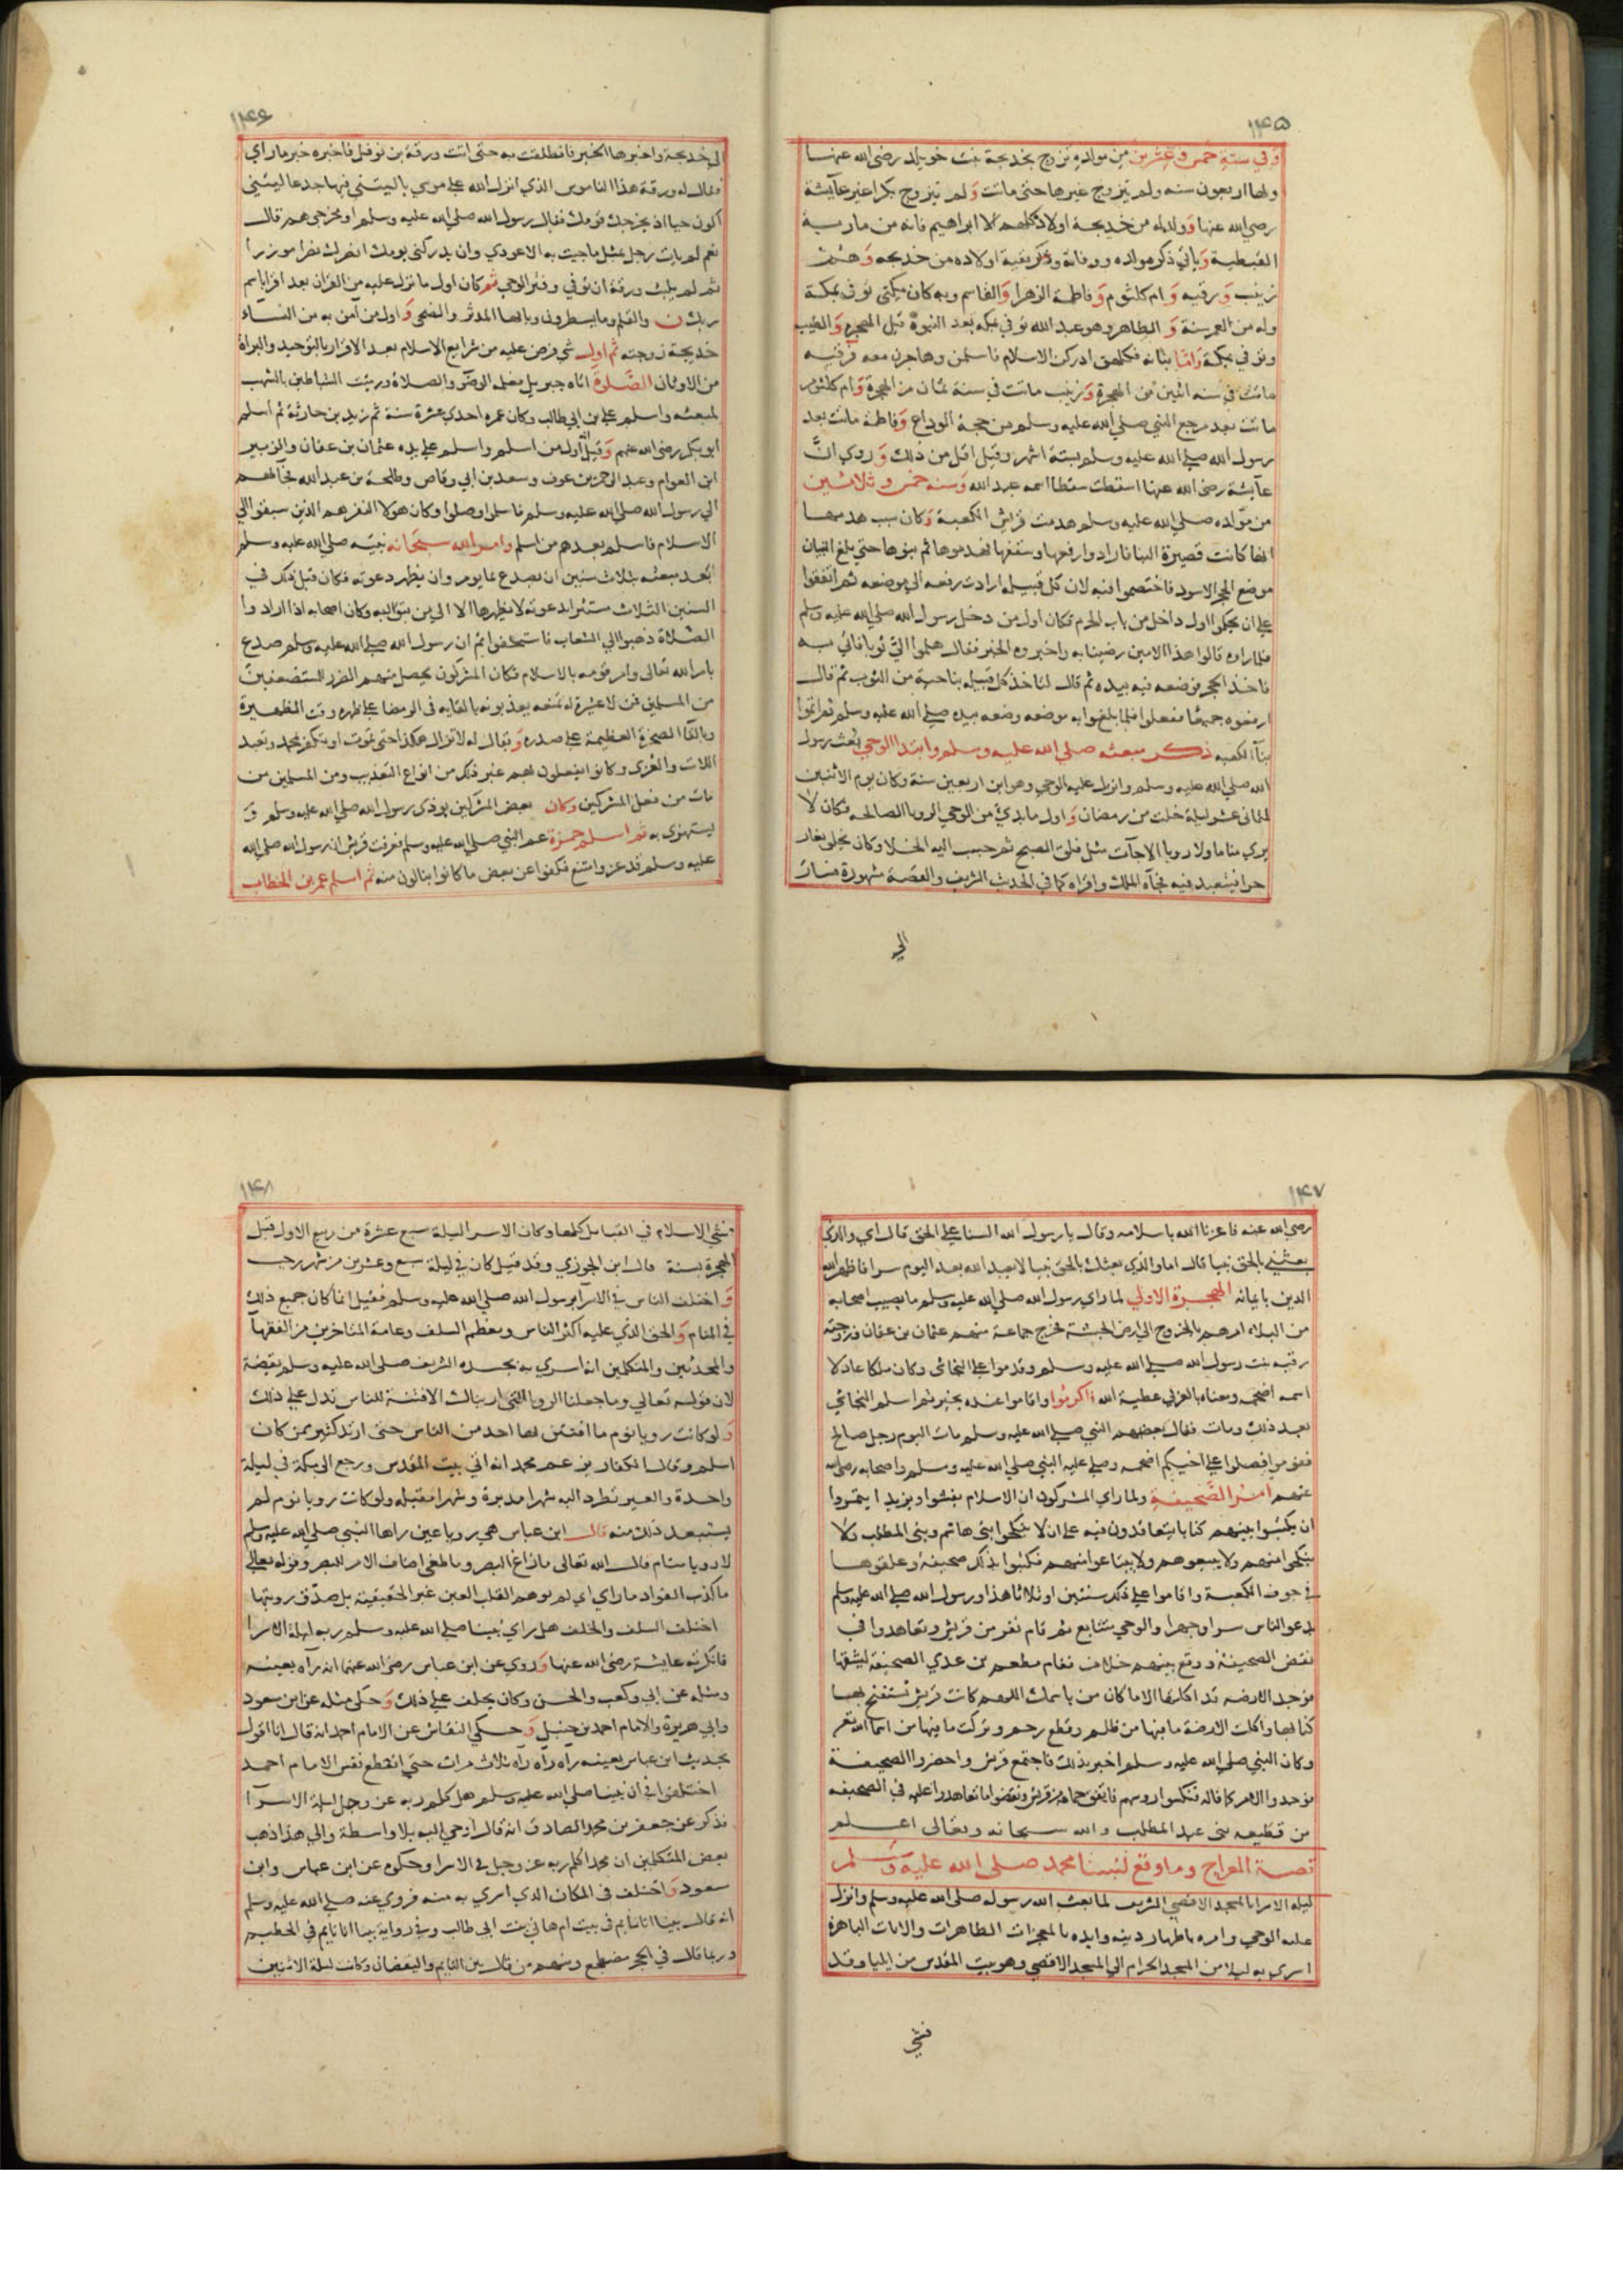 ١٤٥
وفي سنة خمس وعشرين من مولده تزوج بخديجة بنت خويلد رضي الله عنها
ولها اربعون سنه ولم يتزوج غيرها حتى ماتت ولم يتزوج بكرا غير عآيشة
رضي الله عنها وولداه من خديجة اولاد كلهم الا ابراهيم فانه من مارية
القبطية وياتي ذكر مولده ووفاته وذكر بقية اولاده من خديجه وهم
زينب ورقيه وام كلثوم وفاطمة الزهرا والقاسم وبه كان يكنى توفي بمكة
وله من العمر سنة والطاهر وهو عبد الله توفي بمكه بعد النبوة قبل الهجره والطيب
وتوفي بمكة واما بناته فكلهن ادركن الاسلام فاسلمن وهاجرن معه فرقيه
ماتت في سنه اثنين من الهجرة وزينب ماتت في سنة ثمان من الهجرة وام كلثوم
ماتت بعد مرجع النبي صلي الله عليه وسلم من حجة الوداع وفاطمة ماتت بعد
رسول الله صلي الله عليه وسلم بستة اشهر وقيل اقل من ذلك وروي ان
عآيشة رضي الله عنها اسقطت سقطا اسمه عبد الله وسنه خمس وثلاثين
من مولده صلي الله عليه وسلم هدمت قريش الكعبة وكان سبب هدمها
انها كانت قصيرة البنا فارادوا رفعها وسقفها فهدموها ثم بنوها حتي بلغ البنيان
موضع الحجر الاسود فاختصموا فيه لان كل قبيله ارادت رفعه الي موضعه ثم اتفقوا
علي ان يحكموا اول داخل من باب الحرم فكان اول من دخل رسول الله صلي الله عليه وسلم
فلما راوه قالوا هذا الامين رضينا به واخبروه الخبر فقال هلموا الي ثوبا فاتي به
فاخذ الحجر فوضعه فيه بيده ثم قال لتاخذ كل قبيله بناحية من الثوب ثم قال
ارفعوه جميعا ففعلوا فلما بلغوا به موضعه وضعه بيده صلي الله عليه وسلم ثم اتموا
بنآ الكعبه ذكر مبعثه صلي الله عليه وسلم وابتدا الوحي بعث رسول
الله صلي الله عليه وسلم وانزل عليه الوحي وهو ابن اربعين سنة وكان يوم الاثنين
لثماني عشر ليلة خلت من رمضان واول ما بدئ من الوحي الرويا الصالحه فكان لا
يري مناما ولا رويا الا جآت مثل فلق الصبح ثم حبب اليه الخلا وكان يخلي بغار
حرا فيتعبد فيه فجآه الملك واقراه كما في الحديث الشريف والقصة مشهورة فسار
الي
١٤٦
الي خديجة واخبرها الخبر فانطلقت به حتى اتت ورقة بن نوفل فاخبره خبر ما راي
فقال له ورقة هذا الناموس الذي انزل الله علي موسي ياليتني فيها جدعا ليتني
اكون حيا اذ يخرجك قومك فقال رسول الله صلي الله عليه وسلم او مخرجي هم قال
نعم لم يات رجل بمثل ما جيت به الا عودي وان يدركني يومك انصرك نصرا موزرا
ثم لم يلبث ورقة ان توفي وفتر الوحي ثم كان اول ما نزل عليه من القران بعد اقرا باسم
ربك ن والقلم وما يسطرون ويا ايها المدثر والضحى واول من آمن به من النسآء
خديجة زوجته ثم اول شي فرض عليه من شرايع الاسلام بعد الاقرار بالتوحيد والبراة
من الاوثان الصلوة اتاه جبريل فعلمه الوضؤ والصلاة ورميت الشياطين بالشهب
لمبعثه واسلم علي بن ابي طالب وكان عمره احدي عشرة سنة ثم زيد بن حارثة ثم اسلم
ابو بكر رضي الله عنهم وقيل انه اول من اسلم واسلم علي يده عثمان بن عفان والزبير
ابن العوام وعبد الرحمن بن عوف وسعد بن ابي وقاص وطلحة بن عبد الله فجآ بهم
الي رسول الله صلي الله عليه وسلم فاسلموا وصلوا وكان هولا النفر هم الذين سبقوا الي
الاسلام فاسلم بعدهم من اسلم وامر الله سبحانه نبيه صلي الله عليه وسلم
بعد مبعثه بثلاث سنين ان يصدع بما يومر وان يظهر دعوته فكان قبل ذلك في
السنين الثلاث مستترا بدعوته لا يظهرها الا الي من يثق اليه وكان اصحابه اذا ارادوا
الصلاة ذهبوا الي الشعاب فاستخفوا ثم ان رسول الله صلي الله عليه وسلم صدع
بامر الله تعالى وامر قومه بالاسلام فكان المشركون يحصل منهم الضرر للمستضعفين
من المسلمين فمن لا عشيرة له تمنعه يعذبونه بالقايه في الرمضا علي ظهره وقت الظهيرة
وبالقآ الصخرة العظيمة علي صدره ويقال له لا تزال هكذا حتي تموت او تكفر بمحمد وتعبد
اللات والعزي وكانوا يفعلون بهم غير ذلك من انواع التعذيب ومن المسلمين من
مات من فعل المشركين وكان بعض المشركين يوذي رسول الله صلي الله عليه وسلم و
يستهزي به ثم اسلم حمزة عم النبي صلي الله عليه وسلم فعرفت قريش ان رسول الله صلي الله
عليه وسلم قد عز وامتنع فكفوا عن بعض ما كانوا ينالون منه ثم اسلم عمر بن الخطاب
١٤٧
رضي الله عنه فاعزنا الله باسلامه وقال يارسول الله السنا علي الحق قال اي والذي
بعثني بالحق نبيا قال اما والذي بعثك بالحق نبيا لا يعبد الله بعد اليوم سرا فاظهر الله
الدين بايمانه الهجرة الاولي لما راي رسول الله صلي الله عليه وسلم ما يصيب اصحابه
من البلاء امرهم بالخروج الي ارض الحبشة فخرج جماعة منهم عثمان بن عفان وزوجته
رقيه بنت رسول الله صلي الله عليه وسلم وقدموا علي النجاشي وكان ملكا عادلا
اسمه اضحمه ومعناه بالعربي عطية الله فاكرموا واقاموا عنده بخير ثم اسلم النجاشي
بعد ذلك ومات فقال بعضهم النبي صلي الله عليه وسلم مات اليوم رجل صالح
فقوموا فصلوا علي اخيكم اضحمه وصلي عليه النبي صلي الله عليه وسلم واصحابه رضي الله
عنهم امر الصحيفة ولما راي المشركون ان الاسلام يفشوا ويزيد ايتمروا
ان يكتبوا بينهم كتابا يتعاقدون فيه علي ان لا ينكحوا بني هاشم وبني المطلب ولا
ينكحوا منهم ولا يبيعوهم ولا يبتاعوا منهم فكتبوا بذلك صحيفة وعلقوها
في جوف الكعبة واقاموا علي ذلك سنتين او ثلاثا هذا ورسول الله صلي الله عليه وسلم
يدعو الناس سرا وجهرا والوحي يتتابع ثم قام نفر من قريش وتعاهدوا في
نقض الصحيفة ووقع بينهم خلاف فقام مطعم بن عدي الصحيفة ليشقها
فوجد الارضه قد اكلتها الا ما كان من باسمك اللهم كانت قريش تستفتح بها
كتابها واكلت الارضة ما فيها من ظلم وقطع رحم وتركت ما فيها من اسمآ الله تعـ
وكان النبي صلي الله عليه وسلم اخبر بذلك فاجتمع قريش واحضروا الصحيفة
فوجدوا الامر كما قاله فنكسوا روسهم فاتفق جماعة من قريش ونقضوا ما تعاهدوا عليه في الصحيفه
من قطيعه بني عبد المطلب والله سبحانه وتعالى اعلم
قصة المعراج وما وقع لنبينا محمد صلي الله عليه وسلم
ليلة الاسرا بالمسجد الاقصي الشريف لما بعث الله رسوله صلي الله عليه وسلم وانزل
عليه الوحي وامره باظهار دينه وايده بالمعجزات الظاهرات والايات الباهرة
اسري به ليلا من المسجد الحرام الي المسجد الاقصي وهو بيت المقدس من ايليا وقد
فشي
١٤٨
فشي الاسلام في القبايل كلها وكان الاسرا ليلة سبع عشرة من ربيع الاول قبل
الهجرة بسنة قال ابن الجوزي وقد قيل كان في ليلة سبع وعشرين من شهر رجب
واختلف الناس في الاسرآ برسول الله صلي الله عليه وسلم فقيل انما كان جميع ذلك
في المنام والحق الذي عليه اكثر الناس ومعظم السلف وعامة المتاخرين من الفقهآ
والمحدثين والمتكلمين انه اسري به بجسده الشريف صلي الله عليه وسلم يقضة
لان قوله تعالي وما جعلنا الرويا التي اريناك الا فتنة للناس تدل علي ذلك
ولو كانت رويا نوم ما افتتن بها احد من الناس حتى ارتد كثير ممن كان
اسلم وقال الكفار يزعم محمد انه اتي بيت المقدس ورجع الي مكة في ليلة
واحدة والعير تطرد اليه شهرا مدبرة وشهرا مقبله ولو كانت رويا نوم لم
يستبعد ذلك منه قال ابن عباس هي رويا عين راها النبي صلي الله عليه وسلم
لا رويا منام قال الله تعالى ما زاغ البصر وما طغي اضاف الامر للبصر وقوله تعالي
ما كذب الفواد ما راي اي لم يوهم القلب العين غير الحقيقية بل صدق رويتها
اختلف السلف والخلف هل راي نبينا صلي الله عليه وسلم ربه ليلة الاسرا
فانكرته عايشة رضي الله عنها وروي عن ابن عباس رضي الله عنهما انه رآه بعينه
ومثله عن ابي وكعب والحسن وكان يحلف علي ذلك وحكي مثله عن ابن مسعود
وابي هريرة والامام احمد بن حنبل وحكي النقاش عن الامام احمد انه قال انا اقول
بحديث ابن عباس بعينه راه رآه رآه ثلاث مرات حتي انقطع نفس الامام احمد
اختلفوا في ان نبينا صلي الله عليه وسلم هل كلم ربه عز وجل ليلة الاسرآ
فذكر عن جعفر بن محمد الصادق انه قال اوحي اليه بلا واسطة والي هذا ذهب
بعض المتكلمين ان محمدا كلم ربه عز وجل في الاسرا وحكوه عن ابن عباس وابن
مسعود واختلف في المكان الذي اسري به منه فروي عنه صلي الله عليه وسلم
انه قال بينا انا نايم في بيت ام هاني بنت ابي طالب وفي رواية بينا انا نايم في الحطيم
وربما قال في الحجر مضطجع ومنهم من قال بين النايم واليقضان وكانت ليلة الاثنين